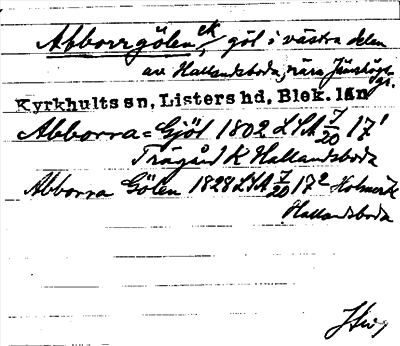 Abborrgölen, ek göl i västra delen
av Hallandsboda, nära Jämshögs
gr.
Kyrkhults sn, Listers hd, Blek. län
Abborra=Gjöl 1802 LSA 7/20 17¹
Trägård K Hallandsboda
Abborra Gölen 1828 LSA 7/20 17²
Hallandsboda